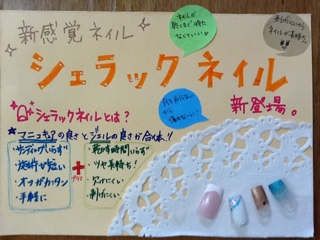 新感覚ネイル
シェラック ネイル
新登場。
シェラックネイルとは?
★マニキュアの良さとジェルの良さが合体!!
・サンディングいらず
・施術が短い
・オフがカンタン
・手軽に
+
・乾かす時間いらず
・ツヤ長持ち!
・欠けにくい
・剥げにくい